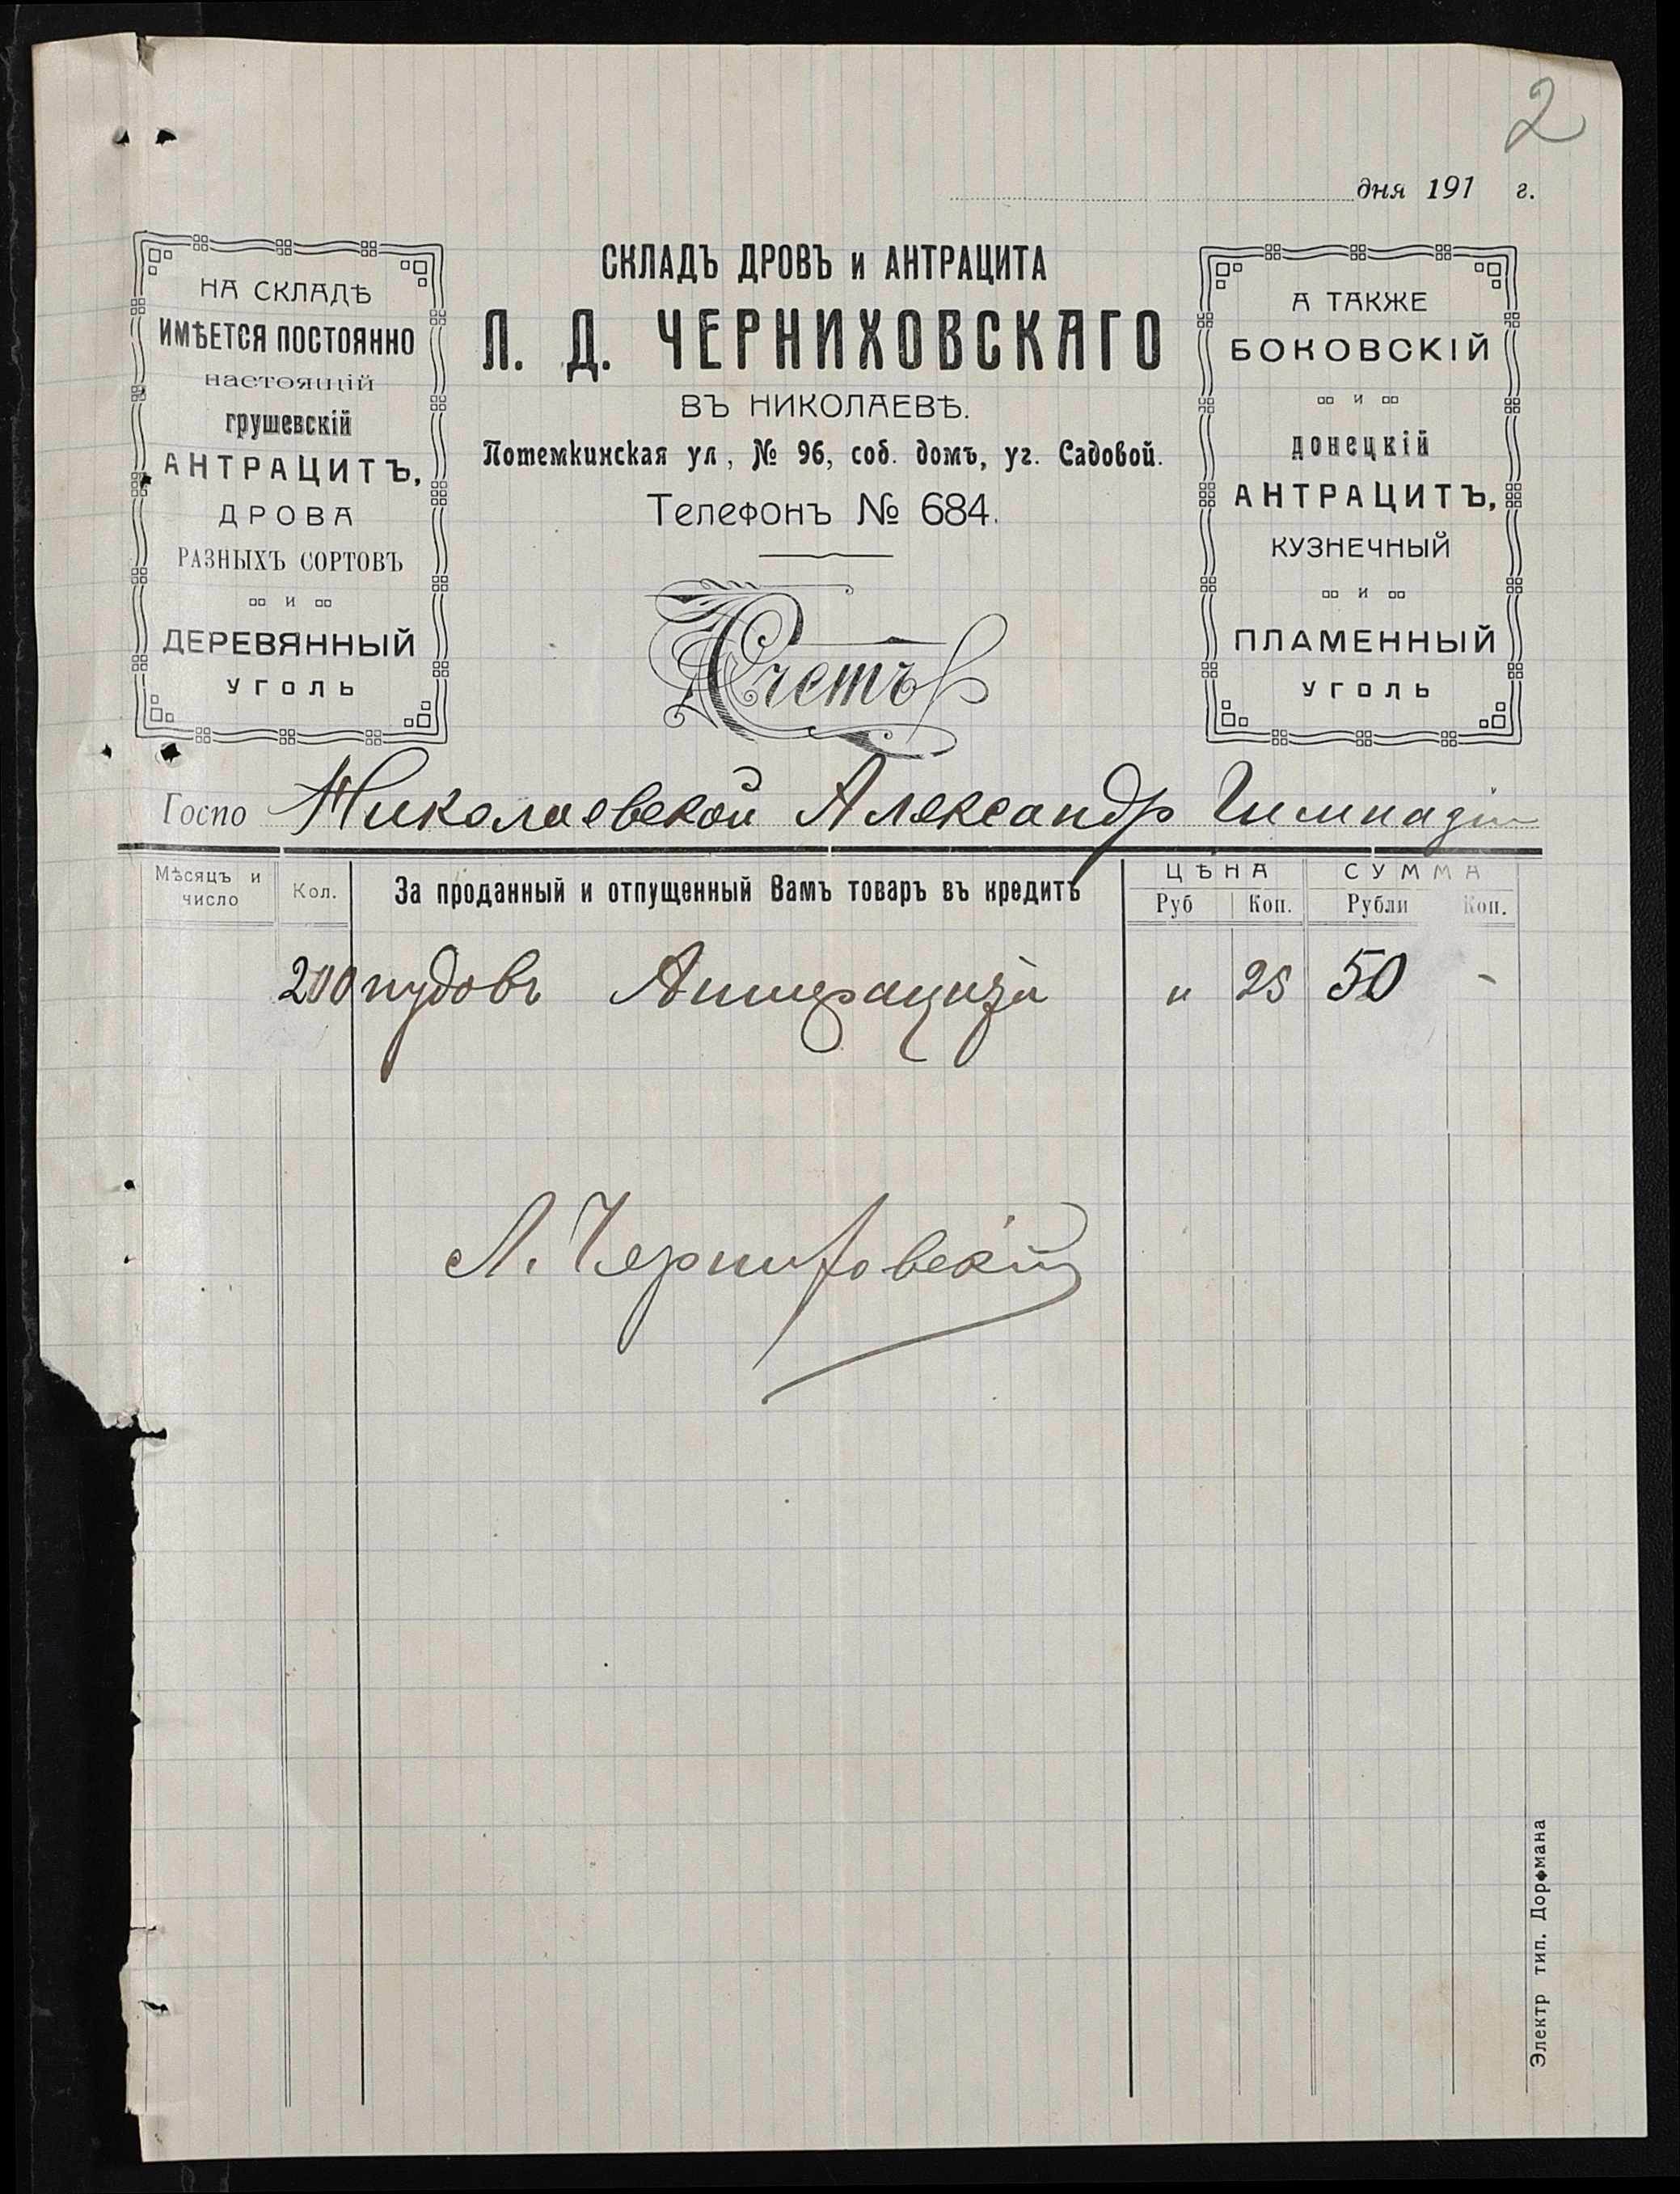 2
дня 191 г.
НА СКЛАДѢ
ИМѢЕТСЯ ПОСТОЯННО
настоящій
грушевскій
АНТРАЦИТЪ,
ДРОВА
РАЗНЫХЪ СОРТОВЪ
и
ДЕРЕВЯННЫЙ
УГОЛЬ
СКЛАДЪ ДРОВЪ и АНТРАЦИТА
Л. Д. ЧЕРНИХОВСКАГО
ВЪ НИКОЛАЕВѢ.
Потемкинская ул, № 96, соб. домъ, уг. Садовой.
Телефонъ № 684.
Счетъ
А ТАКЖЕ
БОКОВСКІЙ
и
донецкій
АНТРАЦИТЪ,
КУЗНЕЧНЫЙ
и
ПЛАМЕННЫЙ
УГОЛЬ
Госпо Николаевской Александр Гимназіи
Мѣсяцъ и число Кол. За проданный и отпущенный Вамъ товаръ въ кредитъ ЦѢНА СУММА
Руб Коп. Рубли Коп.
200 пудовъ Антрацита " 25 50 -
Л. Черниховскій
Электр тип. Дорфмана